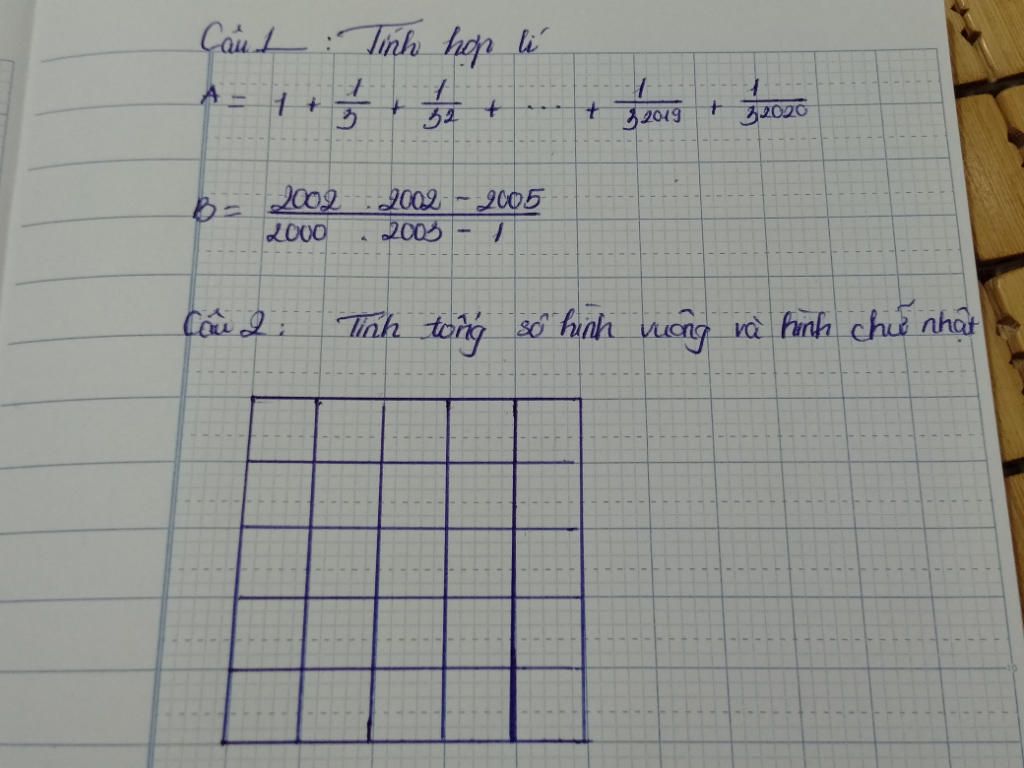 Câu 1 : Tính hợp lí
A = 1 + 1/3 + 1/3² + ... + 1/3²⁰¹⁹ + 1/3²⁰²⁰
B = (2002 . 2002 - 2005)/(2000 . 2003 - 1)
Câu 2 : Tính tổng số hình vuông và hình chữ nhật